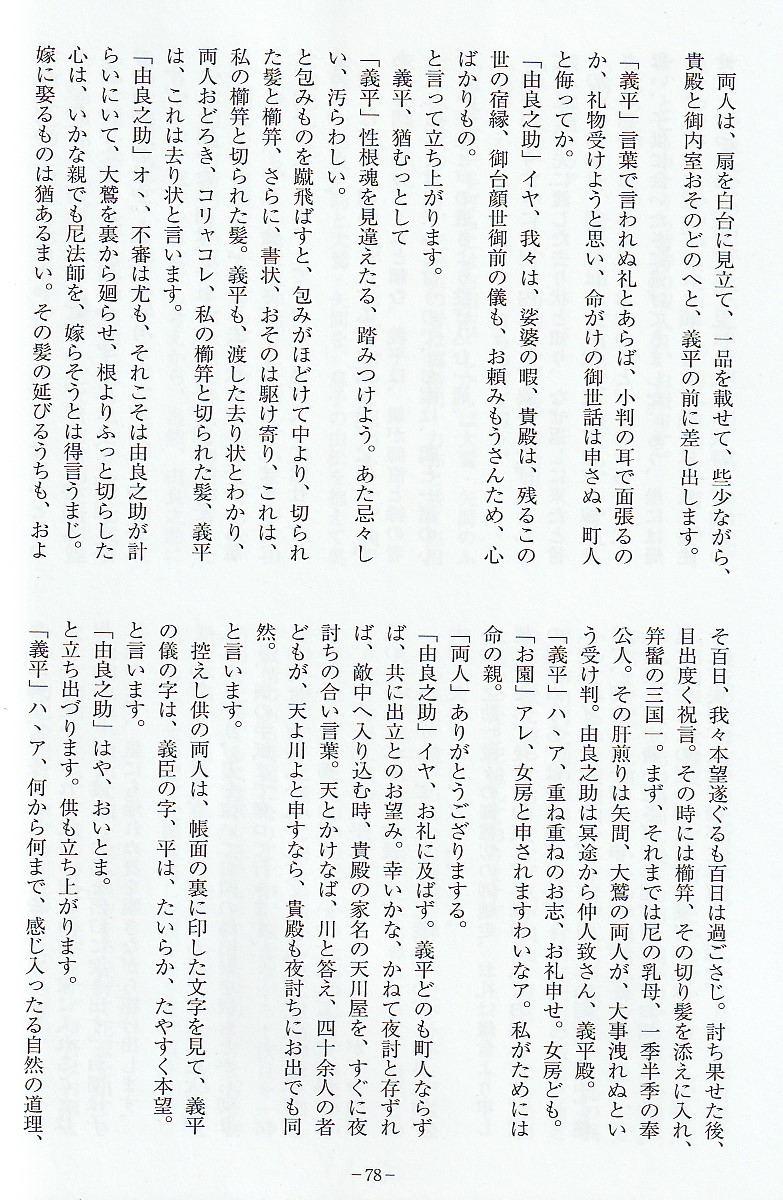 両人は、扇を白台に見立て、一品を載せて、些少ながら、
貴殿と御内室おそのどのへと、義平の前に差し出します。
「義平」言葉で言われぬ礼とあらば、小判の耳で面張るの
か、礼物受けようと思い、命がけの御世話は申さぬ、町人
と侮ってか。
「由良之助」イヤ、我々は、娑婆の暇、貴殿は、残るこの
世の宿縁、御台顔世御前の儀も、お頼みもうさんため、心
ばかりもの。
と言って立ち上がります。
義平、猶むっとして
「義平」性根魂を見違えたる、踏みつけよう。あた忌々し
い、汚らわしい。
と包みものを蹴飛ばすと、包みがほどけて中より、切られ
た髪と櫛笄、さらに、書状、おそのは駆け寄り、これは、
私の櫛笄と切られた髪。義平も、渡した去り状とわかり、
両人おどろき、コリャコレ、私の櫛笄と切られた髪、義平
は、これは去り状と言います。
「由良之助」オヽ、不審は尤も、それこそは由良之助が計
らいにいて、大鷲を裏から廻らせ、根よりふっと切らした
心は、いかな親でも尼法師を、嫁らそうとは得言うまじ。
嫁に娶るものは猶あるまい。その髪の延びるうちも、およ
そ百日、我々本望遂ぐるも百日は過ごさじ。討ち果せた後、
目出度く祝言。その時には櫛笄、その切り髪を添えに入れ、
笄髷の三国一。まず、それまでは尼の乳母、一季半季の奉
公人。その肝煎りは矢間、大鷲の両人が、大事洩れぬとい
う受け判。由良之助は冥途から仲人致さん、義平殿。
「義平」ハヽア、重ね重ねのお志、お礼申せ。女房ども。
「お園」アレ、女房と申されますわいなア。私がためには
命の親。
「両人」ありがとうござりまする。
「由良之助」イヤ、お礼に及ばず。義平どのも町人ならず
ば、共に出立とのお望み。幸いかな、かねて夜討と存ずれ
ば、敵中へ入り込む時、貴殿の家名の天川屋を、すぐに夜
討ちの合い言葉。天とかけなば、川と答え、四十余人の者
どもが、天よ川よと申すなら、貴殿も夜討ちにお出でも同
然。
と言います。
控えし供の両人は、帳面の裏に印した文字を見て、義平
の儀の字は、義臣の字、平は、たいらか、たやすく本望。
と言います。
「由良之助」はや、おいとま。
と立ち出づります。供も立ち上がります。
「義平」ハヽア、何から何まで、感じ入ったる自然の道理、
－78－